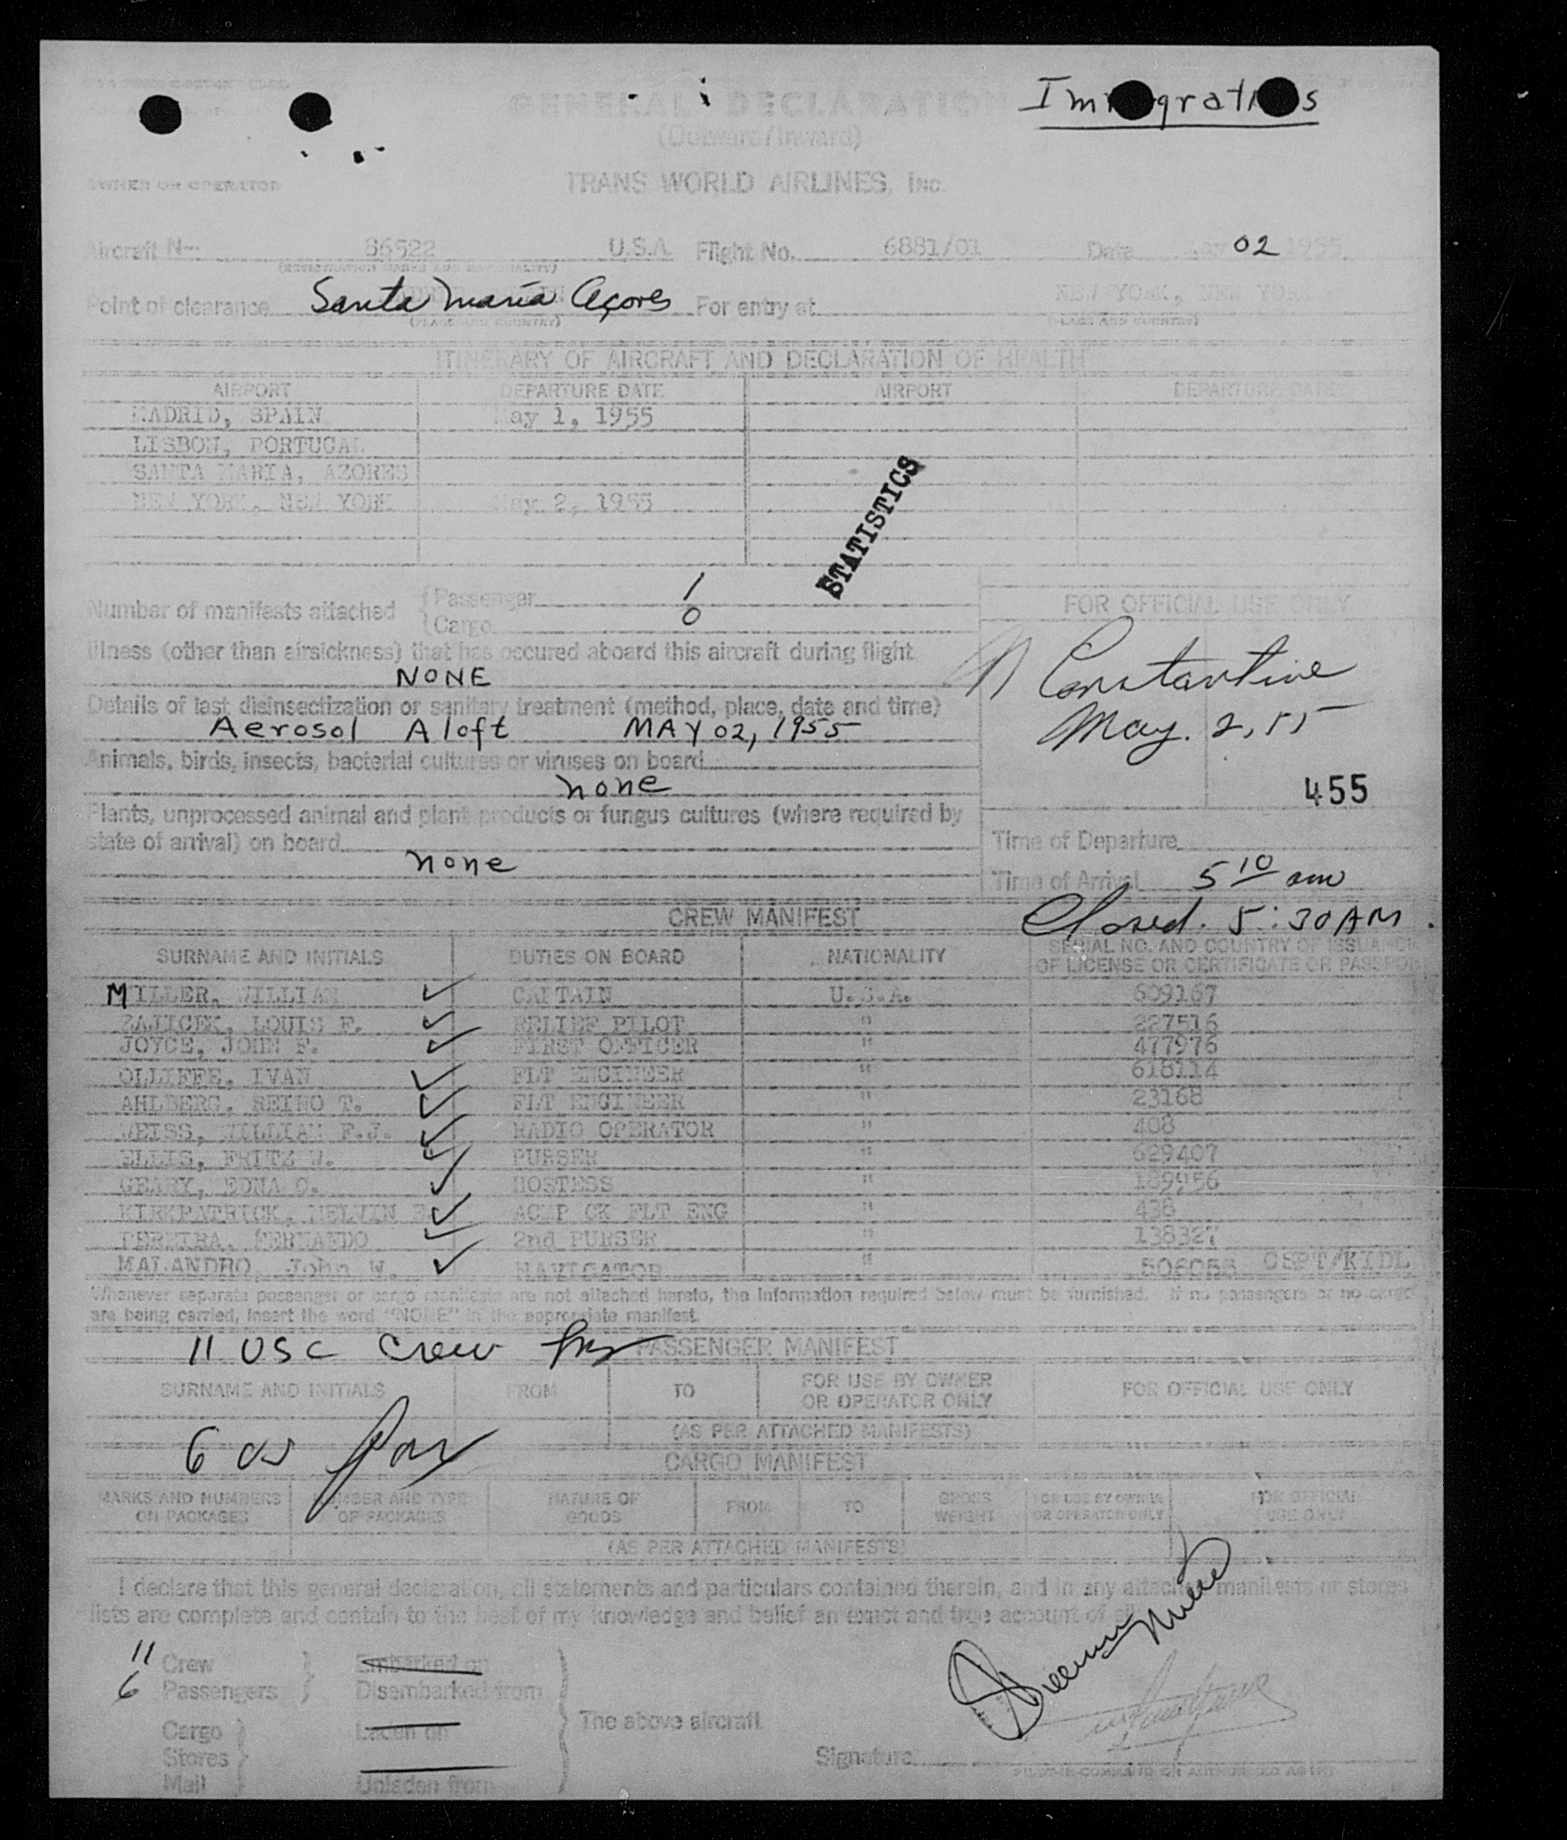 Immigrations
GENERAL DECLARATION
(Outward/Inward)
OWNER OR OPERATOR TRANS WORLD AIRLINES, Inc.
Aircraft N- 86522 U.S.A. Flight No. 6881/01 Date May 02 1955
(REGISTRATION MARKS AND NATIONALITY)
Point of clearance Santa Maria Açores For entry at NEW YORK, NEW YORK
(PLACE AND COUNTRY) (PLACE AND COUNTRY)
ITINERARY OF AIRCRAFT AND DECLARATION OF HEALTH
AIRPORT DEPARTURE DATE AIRPORT DEPARTURE DATE
MADRID, SPAIN May 1, 1955
LISBON, PORTUGAL
SANTA MARIA, AZORES
NEW YORK, NEW YORK May 2, 1955
STATISTICS
Number of manifests attached { Passenger 1
{ Cargo 0
FOR OFFICIAL USE ONLY
Illness (other than airsickness) that has occured aboard this aircraft during flight
NONE
Constantine
May. 2, 55
Details of last disinsectization or sanitary treatment (method, place, date and time)
Aerosol Aloft MAY 02, 1955
Animals, birds, insects, bacterial cultures or viruses on board
none
455
Plants, unprocessed animal and plant products or fungus cultures (where required by
state of arrival) on board
none
Time of Departure
Time of Arrival 5 10 am
Closed. 5:30 AM.
CREW MANIFEST
SURNAME AND INITIALS DUTIES ON BOARD NATIONALITY SERIAL NO. AND COUNTRY OF ISSUANCE
OF LICENSE OR CERTIFICATE OR PASSPORT
MILLER, WILLIAM ✓ CAPTAIN U.S.A. 609167
ZAJICEK, LOUIS F. ✓ RELIEF PILOT " 227516
JOYCE, JOHN F. ✓ FIRST OFFICER " 477976
OLLIFFE, IVAN ✓ FLT ENGINEER " 618114
AHLBERG, REINO T. ✓ FLT ENGINEER " 23168
WEISS, WILLIAM F.J. ✓ RADIO OPERATOR " 408
ELLIS, FRITZ W. ✓ PURSER " 629407
GEARY, EDNA O. ✓ HOSTESS " 189956
KIRKPATRICK, MELVIN ✓ ACMP CK FLT ENG " 438
PEREIRA, FERNANDO ✓ 2nd PURSER " 138327
MALANDRO, John W. ✓ NAVIGATOR " 506055 CSPT/KIDL
Whenever separate passenger or cargo manifests are not attached hereto, the information required below must be furnished. If no passengers or no cargo
are being carried, insert the word "NONE" in the appropriate manifest.
11 USC Crew
PASSENGER MANIFEST
SURNAME AND INITIALS FROM TO FOR USE BY OWNER
OR OPERATOR ONLY FOR OFFICIAL USE ONLY
(AS PER ATTACHED MANIFESTS)
6 US
CARGO MANIFEST
MARKS AND NUMBERS
ON PACKAGES NUMBER AND TYPE
OF PACKAGES NATURE OF
GOODS FROM TO GROSS
WEIGHT FOR USE BY OWNER
OR OPERATOR ONLY FOR OFFICIAL
USE ONLY
(AS PER ATTACHED MANIFESTS)
I declare that this general declaration, all statements and particulars contained therein, and in any attached manifests or stores
lists are complete and contain to the best of my knowledge and belief an exact and true account of all
11 Crew Embarked on
6 Passengers Disembarked from
The above aircraft
Cargo Laden on
Stores
Mail Unladen from
Signature
PILOT-IN-COMMAND OR AUTHORIZED AGENT